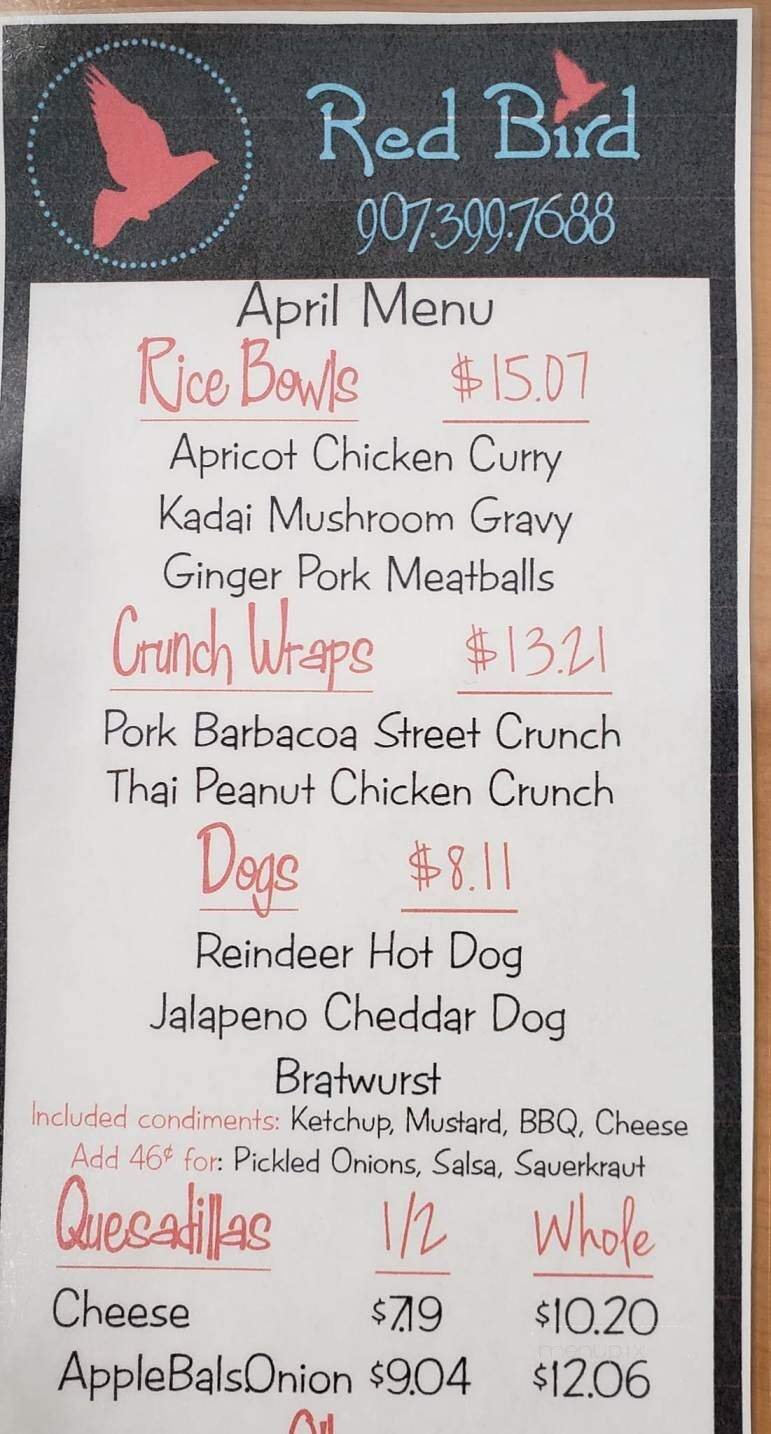 Red Bird
907.399.7688
April Menu
Rice Bowls $15.07
Apricot Chicken Curry
Kadai Mushroom Gravy
Ginger Pork Meatballs
Crunch Wraps $13.21
Pork Barbacoa Street Crunch
Thai Peanut Chicken Crunch
Dogs $8.11
Reindeer Hot Dog
Jalapeno Cheddar Dog
Bratwurst
Included condiments: Ketchup, Mustard, BBQ, Cheese
Add 46¢ for: Pickled Onions, Salsa, Sauerkraut
Quesadillas 1/2 Whole
Cheese $7.19 $10.20
menupix
AppleBalsOnion $9.04 $12.06